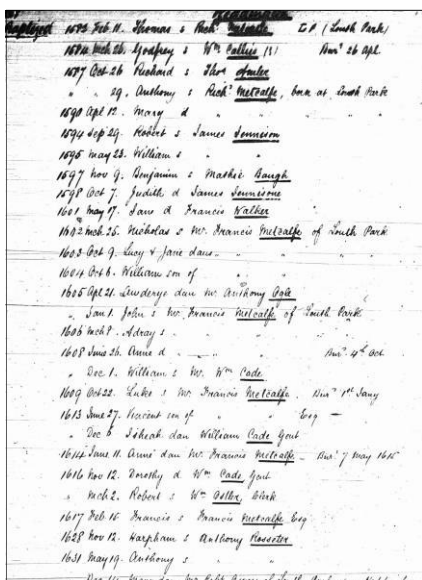 Baptized 1583 Feb 11. Thomas s Richd Metcalfe L P (South Park)
1584 Mch 26. Godfrey s Wm Callis (?) Burd 26 Apl.
1587 Oct 26 Richard s Thos
" " 29. Anthony s Richd Metcalfe, born at South Park
1590 Apl 12. Mary d " "
1594 Sep 29. Robert s James Jennison
1595 May 23. William s " "
1597 Nov 9. Benjamin s Mathie Baugh
1598 Oct 7. Judith d James Jennisone
1601 May 17. Jane d Francis Walker
1602 Mch 25. Nicholas s Mr. Francis Metcalfe of South Park
1603 Oct 9. Lucy & Jane daus. " "
1604 Oct 6. William son of " "
1605 Apl 21. dau Mr Anthony Ogle
" Jan 1. John s Mr. Francis Metcalfe of South Park
1606 Mch 8. Adray s " "
1608 June 26. Anne d " " Burd 4th Oct.
" Dec 1. William s Mr. Wm Cade
1609 Oct 22. Luke s Mr Francis Metcalfe. Burd 1st Jany
1613 June 27. Vincent son of " " Esq —
" Dec 5 dau William Cade Gent
1614 June 11. Anne dau Mr Francis Metcalfe - Burd 7 May 1615
1616 Nov 12. Dorothy d Wm Cade, Gent
" Mch 2. Robert s Wm Clerk
1617 Feb 16 Francis s Francis Metcalfe Esq
1628 Nov 12. Harpham s Anthony Rosseter
1631 May 19. Anthony s " "